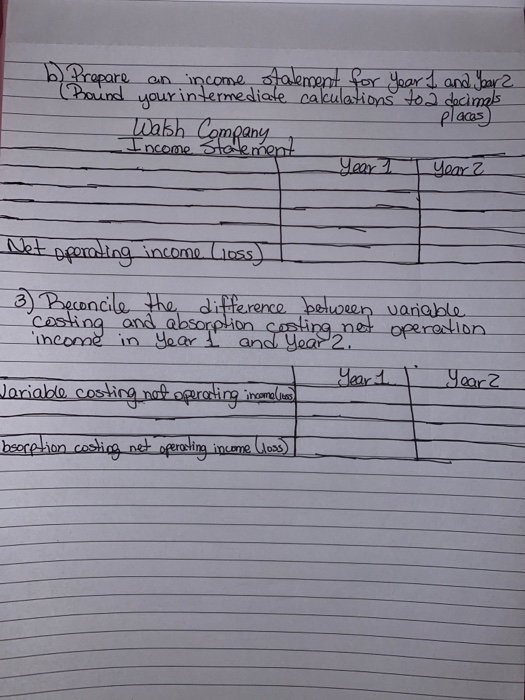 b) Prepare an income statement for year 1 and Year 2
(Round your intermediate calculations to 2 decimals
places)
Walsh Company
Income Statement
Year 1 Year 2
Net operating income (loss)
3) Reconcile the difference between variable
costing and absorption costing net operation
income in Year 1 and Year 2.
Year 1 Year 2
Variable costing net operating income (loss)
bsorption costing net operating income (loss)